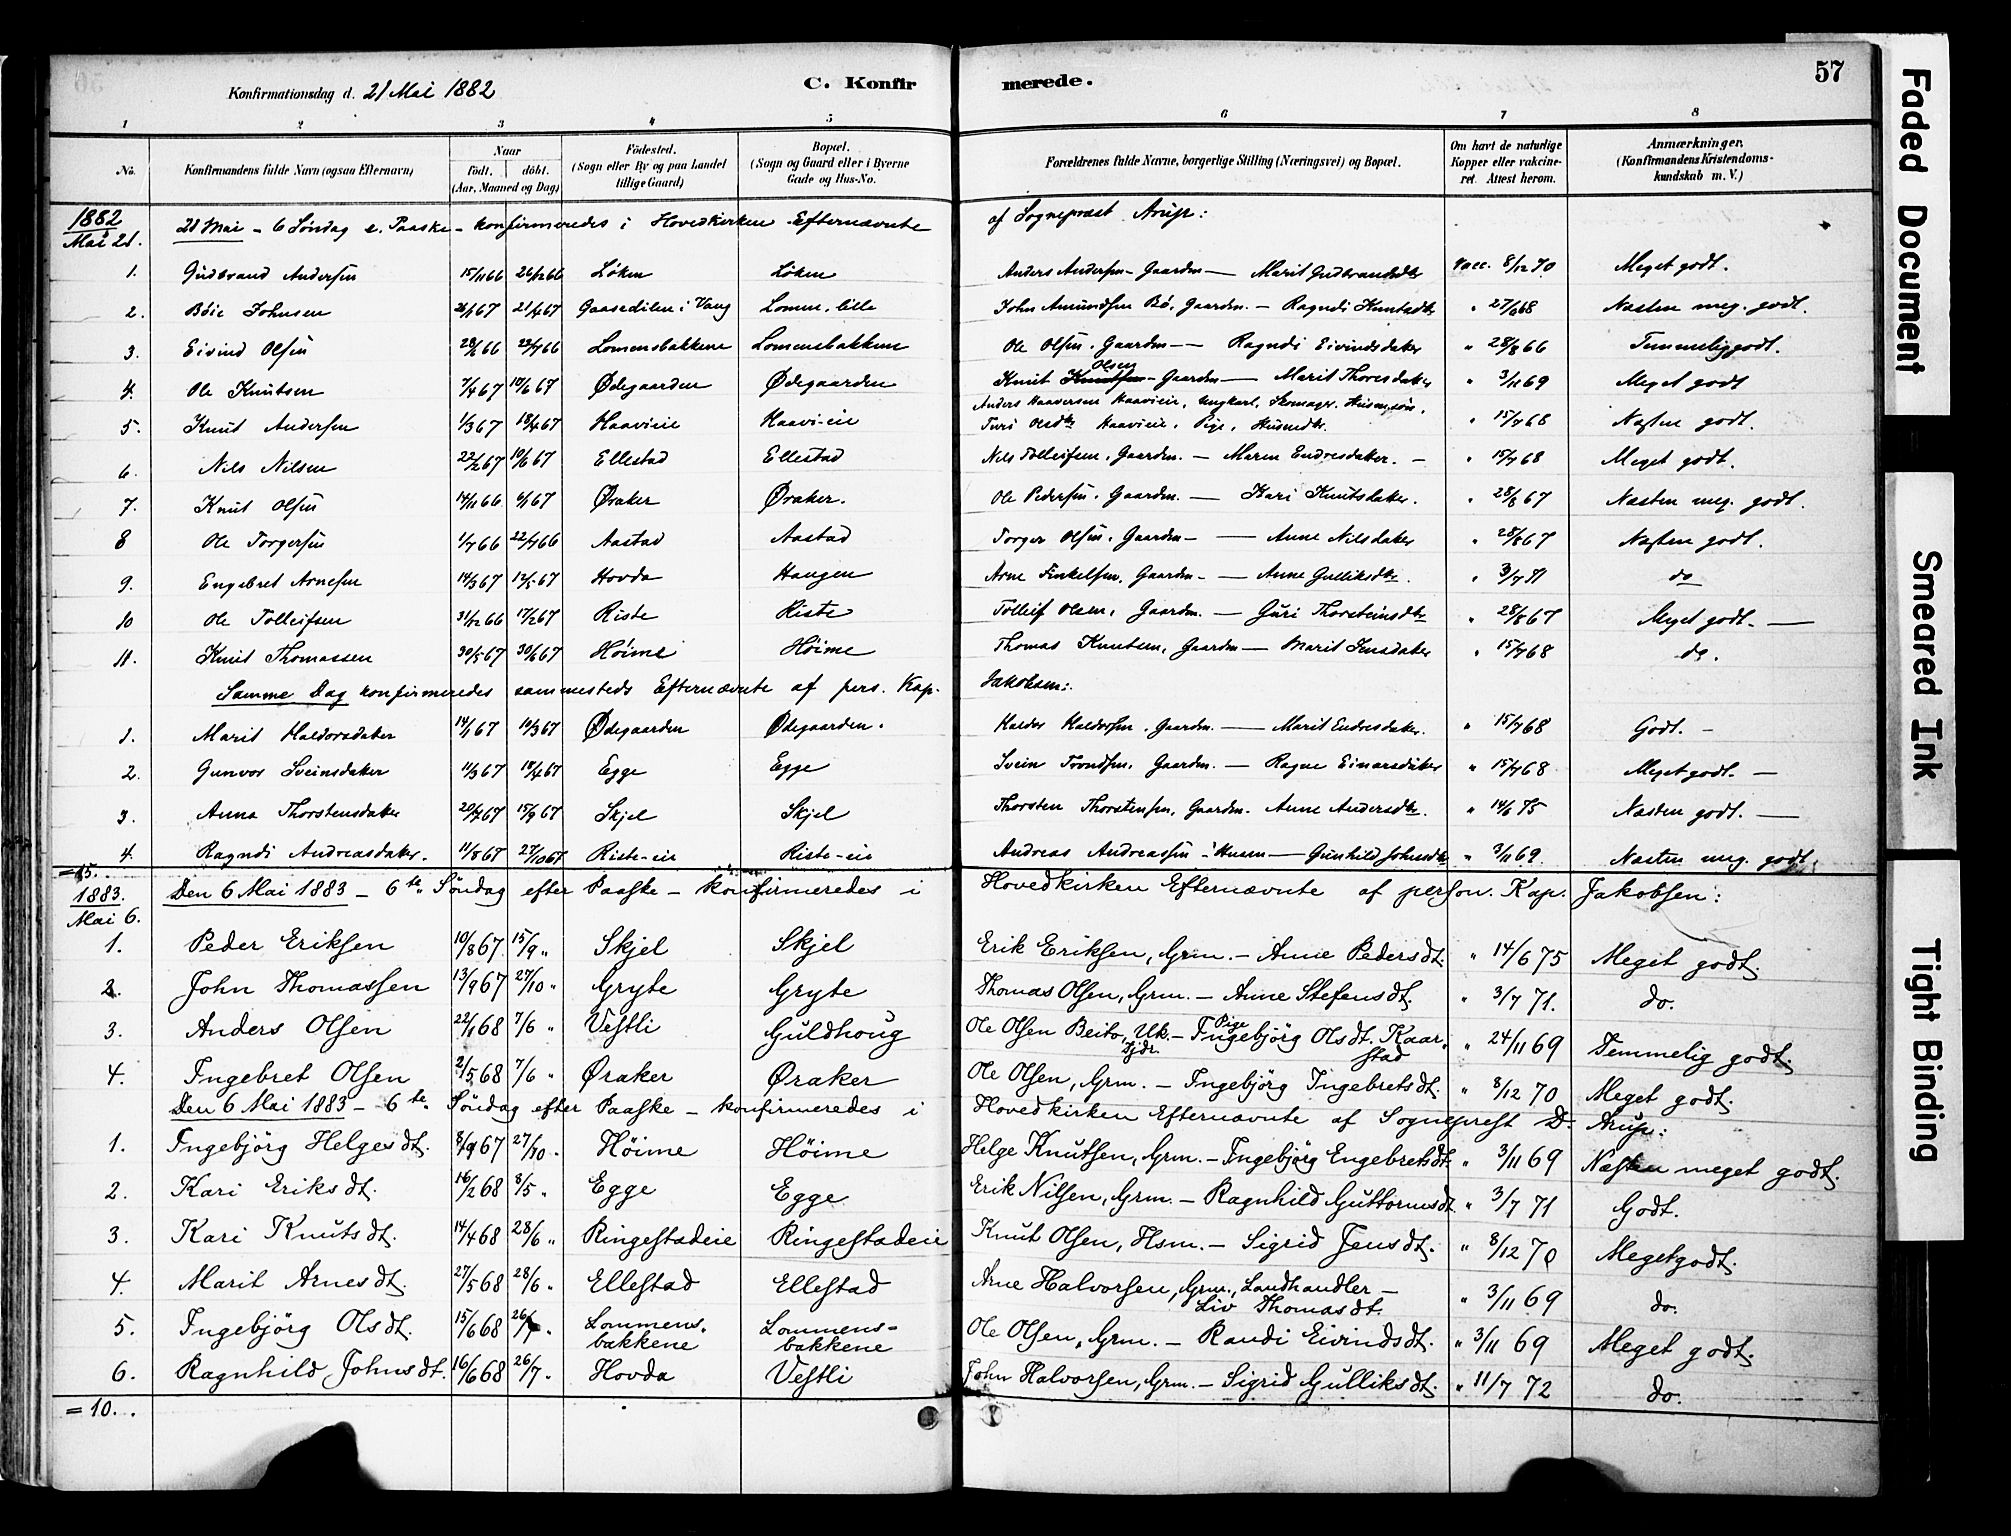 Konfirmationsdag d. 21 Mai 1882
C. Konfirmerede.
57
1 2 3 4 5 6 7 8
No.
Konfirmandens fulde Navn (ogsaa Efternavn)
Naar
födt. döbt.
(Aar, Maaned og Dag)
Födested.
(Sogn eller By og paa Landet tillige Gaard)
Bopæl.
(Sogn og Gaard eller i Byerne Gade og Hus-No.
Forældrenes fulde Navne, borgerlige Stilling (Næringsvei) og Bopæl.
Om havt de naturlige Kopper eller vakcineret. Attest herom.
Anmærkninger.
(Konfirmandens Kristendomskundskab m. V.)
1882
Mai 21. 21 Mai - 6 Søndag e. Paaske - konfirmeredes i Hovedkirken Efternævnte af Sognepræst Arup:
1. Gudbrand Andersen 15/11 66 26/12 66 Løken Løken Anders Andersen - Gaardm - Marit Gudbrandsdtr Vacc. 8/12 70 Meget godt.
2. Böie Johnsen 21/4 67 Gaasedilen i Vang Lomen, lille John Amundsen Bö, Gaardm. - Ragndi Knutsdtr 68 Næsten meg. godt.
3. Eivind Olsen 66 Lomensbakkene Lomensbakkene Ole Olsen, Gaardm - Ragndi Eivindsdater " 28/8 66 Temmelig godt.
4. Ole Knutsen 7/4 67 10/6 67 Ødegaarden Ødegaarden Knut Olsen - Gaardm - Marit Thoresdater " 3/11 69 Meget godt
5. Knut Andersen 1/3 67 18/4 67 Haavieie Haavi-eie Anders Haaversen Haavieie, Ungkarl, Skomager, Husmssøn, Turi Olsdtr Haavieie, Pige, Husmdtr. " 15/7 68 Næsten godt.
6. Nils Nilsen 22/2 67 10/6 67 Ellestad Ellestad Nils Tolleifsen, Gaardm. - Maren Endresdater. - " 15/7 68 Meget godt.
7. Knut Olsen 14/11 66 6/1 67 Øraker Øraker. Ole Pedersen, Gaardm. - Kari Knutsdater. " 28/8 67 Næsten meg. godt.
8 Ole Torgersen 1/7 66 22/7 66 Aastad Aastad Torger Olsen, Gaardm - Anne Nilsdater " 28/8 67 Næsten godt.
9. Engebret Arnesen 14/3 67 12/5 67 Hovda Haugen Arne Finkelsen, Gaardm - Anne Gulliksdtr. " 3/7 71 do
10 Ole Tolleifsen 31/12 66 17/2 67 Riste Riste Tolleif Olsen, Gaardm. - Guri Thorsteinsdtr " 28/8 67 Meget godt. -
11. Knut Thomassen 30/5 67 30/6 67 Höime Höime Thomas Knutsen, Gaardm - Marit Jensdater " 15/7 68 do.
Samme Dag konfirmeredes sammesteds Efternævnte af pers. Kap. Jakobsen:
1. Marit Haldorsdater 14/1 67 10/3 67 Ødegaarden Ødegaarden. Haldor Haldorsen, Gaardm. - Marit Endresdater. " 15/7 68 Godt. -
2. Gunvor Sveinsdater 11/3 67 18/4 67 Egge Egge Svein Trondsen, Gaardm. - Ragne Einarsdater " 15/7 68 Meget godt. -
3. Anna Thorstensdater 20/7 67 15/9 67 Skjel Skjel Thorsten Thorstensen, Gaardm. Anne Andersdtr. " 14/6 75 Næsten godt. -
4. Ragndi Andreasdater. 11/8 67 27/10 67 Riste-eie Riste-eie Andreas Andreassen - Husm - Gunhild Johnsdtr " 3/11 69. Næsten meg. godt.
=15.
1883. Den 6 Mai 1883 - 6te Söndag efter Paaske - konfirmeredes i Hovedkirken Efternævnte af person. Kap. Jakobsen:
Mai 6.
1. Peder Eriksen 10/8 67 15/9 " Skjel Skjel Erik Eriksen, Grm. - Anne Pedersdt. " 14/6 75 Meget godt.
2. John Thomassen 13/9 67 27/10 " Gryte Gryte Thomas Olsen, Grm. - Anne Stefensdt. " 3/7 71. do.
3. Anders Olsen 22/1 68 7/6 " Vestli Guldhoug Ole Olsen Beito, Uk. Tjdr. - Pige Ingebjörg Olsdt. Kaarstad " 24/11 69 Temmelig godt.
4. Ingebret Olsen 2/5 68 7/6 " Øraker Øraker Ole Olsen, Grm. - Ingebjörg Ingebretsdt. " 8/12 70 Meget godt.
Den 6 Mai 1883 - 6te Söndag efter Paaske - konfirmeredes i Hovedkirken Efternævnte af Sogneprest D. Arup:
1. Ingebjörg Helgesdt. 8/9 67 27/10 " Höime Höime Helge Knutsen, Grm. - Ingebjörg Engebretsdt. " 3/11 69 Næsten meget godt.
2. Kari Eriksdt. 16/2 68 8/5 " Egge Egge Erik Nilsen, Grm. - Ragnhild Guttormsdt " 3/7 71 Godt.
3. Kari Knutsdt. 14/4 68 28/6 " Ringestadeie Ringestadeie Knut Olsen, Hsm. - Sigrid Jensdt. " 8/12 70 Meget godt.
4. Marit Arnesdt. 27/5 68 28/6 " Ellestad Ellestad Arne Halvorsen, Grm., Landhandler - Liv Thomasdt. " 3/11 69 do.
5. Ingebjörg Olsdt. 15/6 68 26/7 " Lommensbakkene Lommens-bakkene Ole Olsen, Grm. - Randi Eivindsdt. " 3/11 69 Meget godt.
6. Ragnhild Johnsdt. 16/6 68 26/7 " Hovda Vestli John Halvorsen, Grm. - Sigrid Gulliksdt. " 11/7 72 do.
=10.
Faded Document
Smeared Ink
Tight Binding